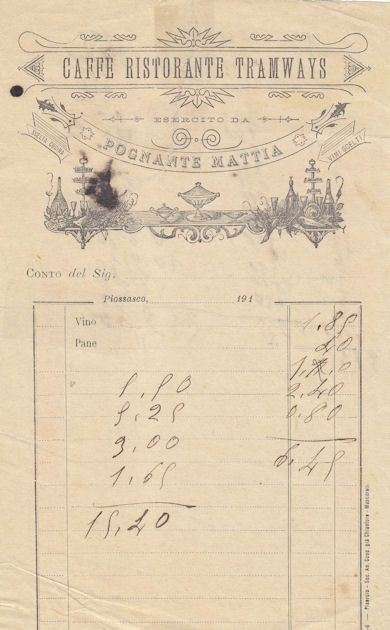 CAFFÈ RISTORANTE TRAMWAYS
ESERCITO DA
SCELTA CUCINA
POGNANTE MATTIA
VINI SCELTI
CONTO del Sig.
Piossasco, 191
Vino 1.85
Pane 40
2.40
5.50 0.80
5.25
3.00 6.45
1.65
15.40
Pinerolo - Soc. An. Coop. già Chiantore - Mascarelli